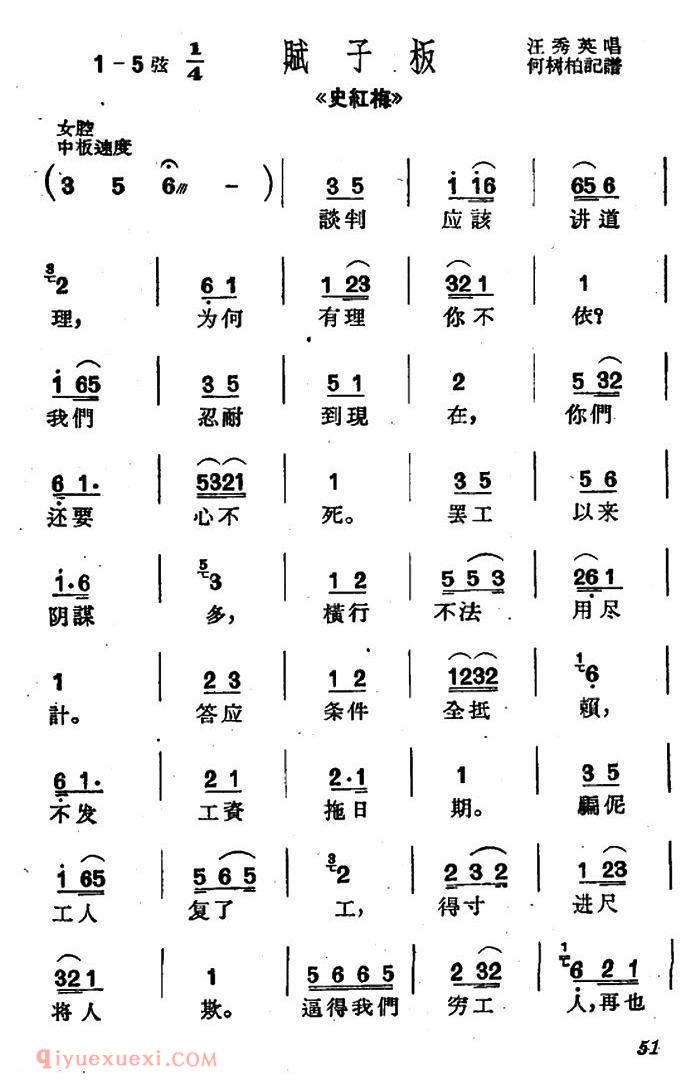 1-5弦 1/4 賦子板 汪秀英唱
何树柏記譜
《史紅梅》
女腔
中板速度
( 3 5 6 - ) | 3 5 | i i6 | 65 6 |
談判 应該 讲道
3 2 | 6 1 | 1 23 | 32 1 | 1 |
理， 为何 有理 你不 依？
i 65 | 3 5 | 5 1 | 2 | 5 32 |
我們 忍耐 到現 在， 你們
6 1. | 5321 | 1 | 3 5 | 5 6 |
还要 心不 死。 罢工 以来
i.6 | 5 3 | 1 2 | 5 5 3 | 26 1 |
阴謀 多， 横行 不法 用尽
1 | 2 3 | 1 2 | 1232 | 1 6 |
計。 答应 条件 全抵 賴，
6 1. | 2 1 | 2.1 | 1 | 3 5 |
不发 工資 拖日 期。 騙伲
i 65 | 5 6 5 | 3 2 | 2 3 2 | 1 23 |
工人 复了 工， 得寸 进尺
32 1 | 1 | 5 6 6 5 | 2 32 | 1 6 2 1 |
将人 欺。 逼得我們 穷工 人，再也
qiyuexuexi.com
51